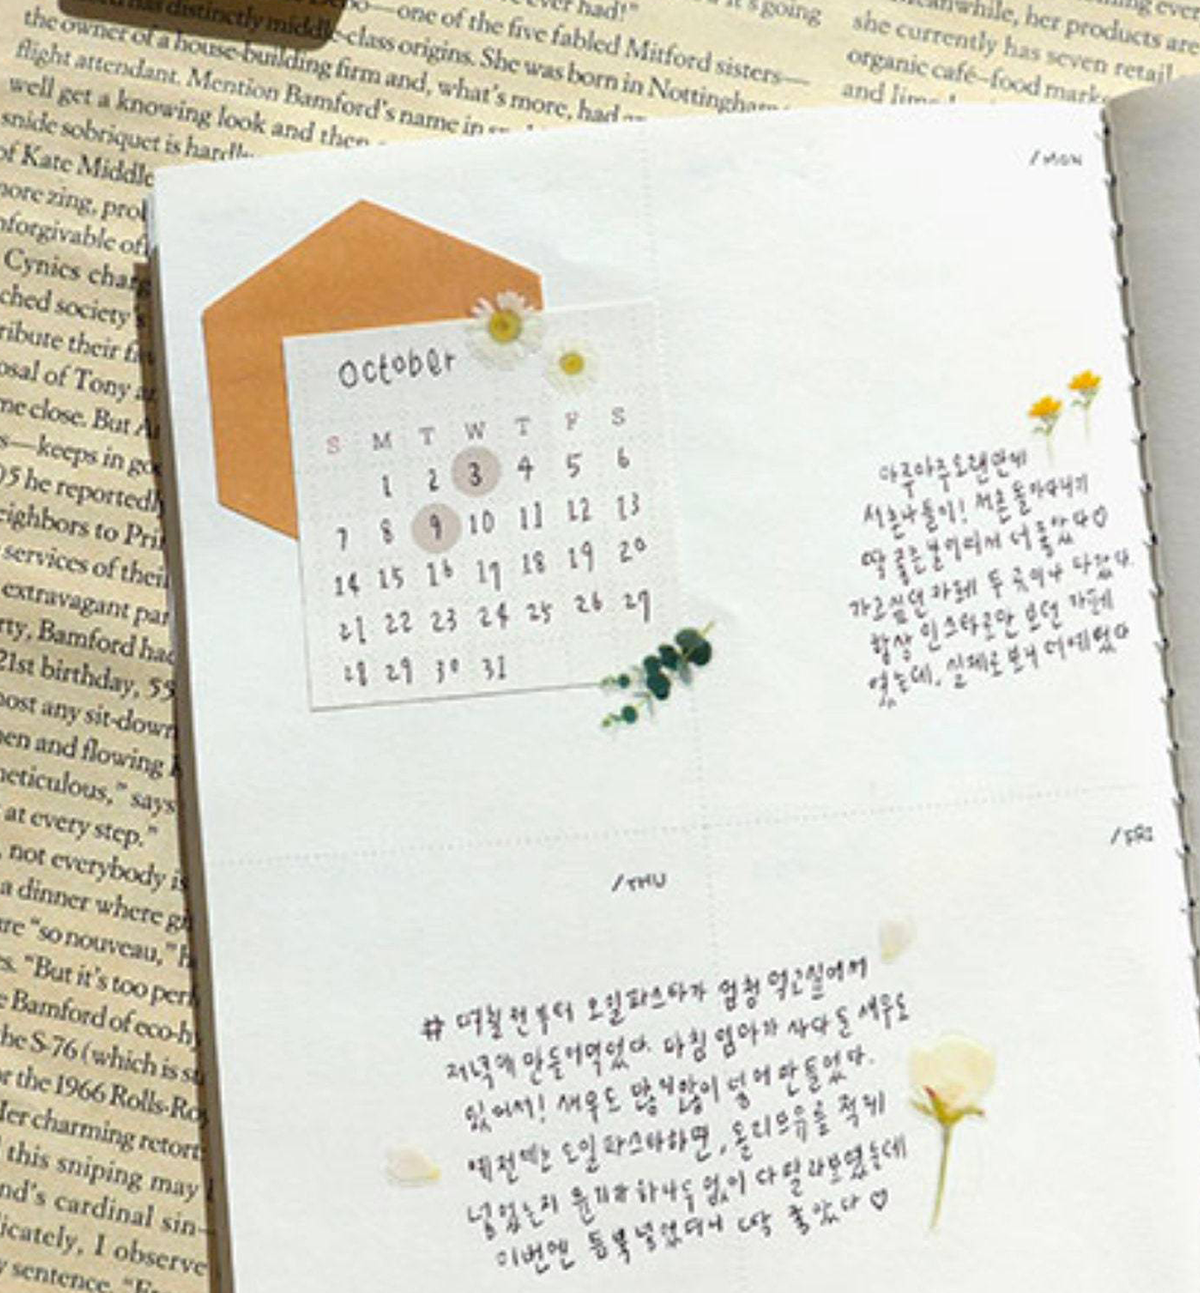 ever had!"
it's going
—one of the five fabled Mitford sisters—
has distinctly middle-class origins. She was born in Nottingham
the owner of a house-building firm and, what's more, had
flight attendant. Mention Bamford's name in
well get a knowing look and then
snide sobriquet is
of Kate
more zing,
Cynics
society's
ribute their
osal of Tony
me close. But
s—keeps in
05 he reported
eighbors to
services of their
extravagant
rty, Bamford had
21st birthday,
most any sit-down
men and flowing
meticulous," says
at every step."
not everybody is
a dinner where
"so nouveau,"
"But it's too
Bamford of
the S-76 (which is
or the 1966
Her charming retort
this sniping may
cardinal sin—
I observe
sentence.
Meanwhile, her products are
she currently has seven retail
organic café–food
and
/MON
October
S M T W T F S
1 2 3 4 5 6
7 8 9 10 11 12 13
14 15 16 17 18 19 20
21 22 23 24 25 26 27
28 29 30 31
아주아주오랜만에
서촌나들이! 서촌 돌아다니기
딱 좋은날이여서 더 좋았다♡
가고싶던 카페 두 곳이나 다녔다
항상 인스타로만 보던 카페
였는데, 실제로 보니 더예뻤다
/THU
/FRI
# 며칠 전부터 오일파스타가 엄청 먹고싶어서
저녁에 만들어먹었다. 마침 엄마가 사다둔 새우도
있어서! 새우도 많이많이 넣어 만들었다.
예전에는 오일파스타하면, 올리브유를 적게
넣었는지 윤기가하나두없이 다 말라보였는데
이번엔 듬뿍넣었더니 딱 좋았다♡